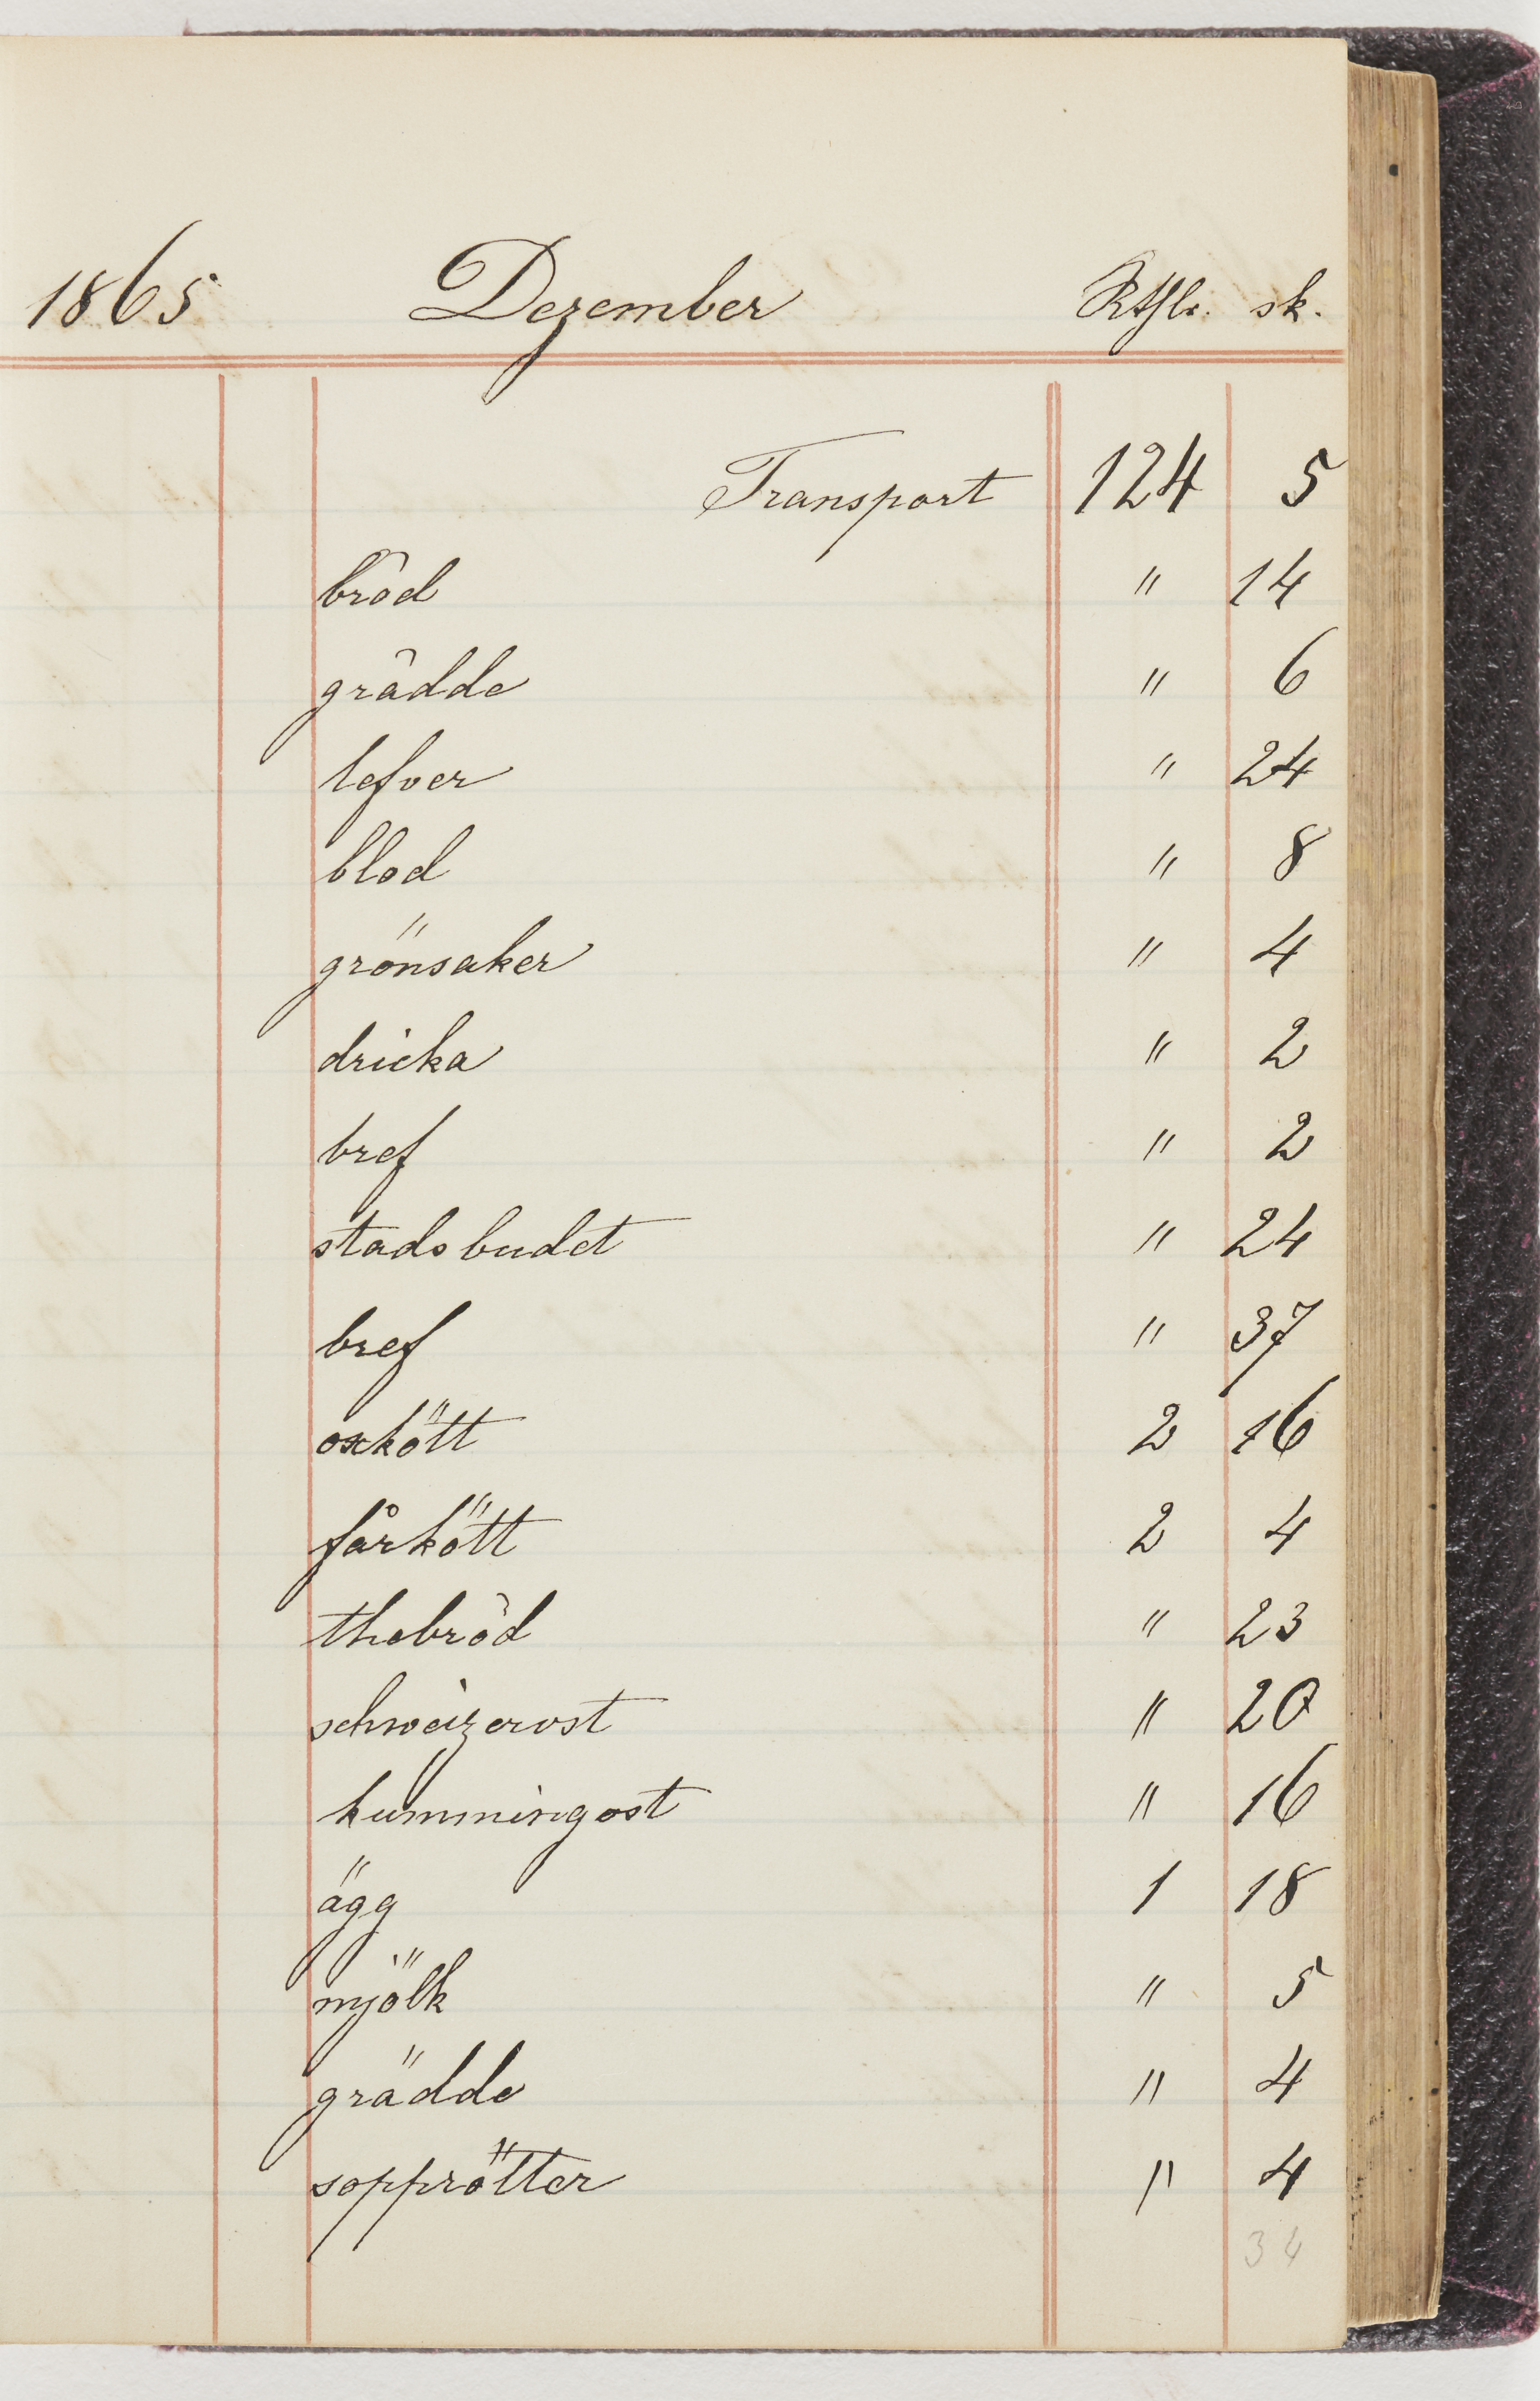 1865 Dezember Rthlr. sk.
Transport 124 5
bröd " 14
grädde " 6
lefver " 24
blod " 8
grönsaker " 4
dricka " 2
bref " 2
stadsbudet " 24
bref " 37
oxkött 2 16
fårkött 2 4
thebröd " 23
schweizerost " 20
kummingost " 16
ägg 1 18
mjölk " 5
grädde " 4
sopprötter " 4
34